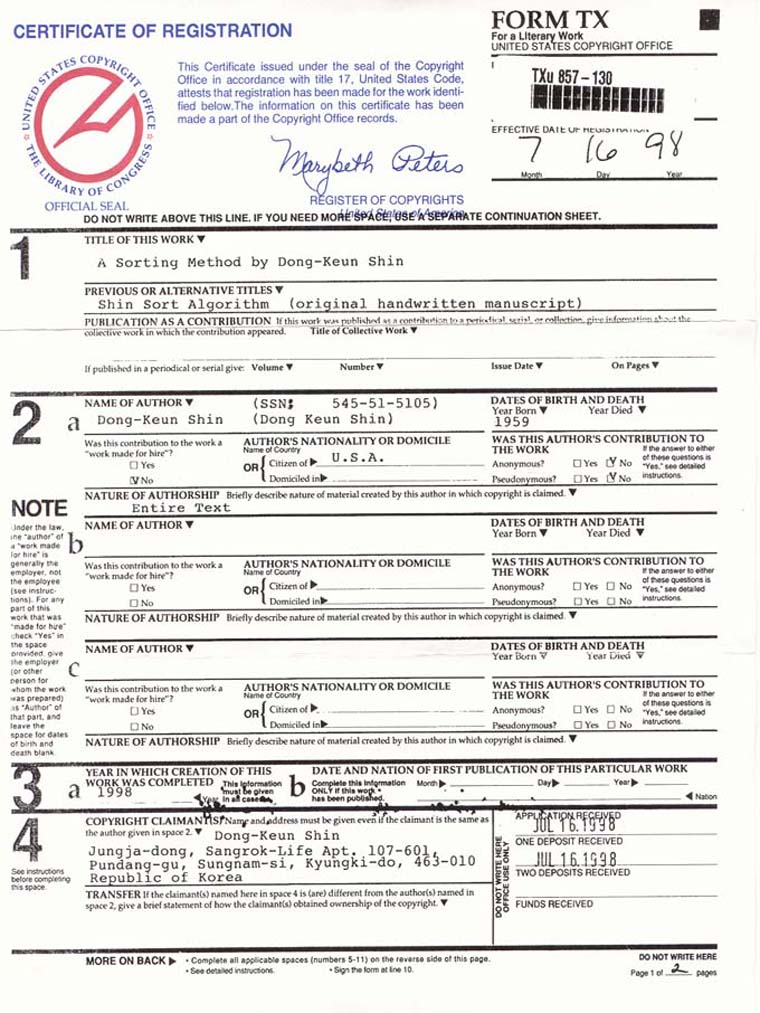 CERTIFICATE OF REGISTRATION
FORM TX
For a Literary Work
UNITED STATES COPYRIGHT OFFICE
UNITED STATES COPYRIGHT OFFICE
THE LIBRARY OF CONGRESS
OFFICIAL SEAL
This Certificate issued under the seal of the Copyright
Office in accordance with title 17, United States Code,
attests that registration has been made for the work identi-
fied below. The information on this certificate has been
made a part of the Copyright Office records.
Marybeth Peters
REGISTER OF COPYRIGHTS
United States of America
TXu 857-130
EFFECTIVE DATE OF REGISTRATION
7 16 98
Month Day Year
DO NOT WRITE ABOVE THIS LINE. IF YOU NEED MORE SPACE, USE A SEPARATE CONTINUATION SHEET.
1
TITLE OF THIS WORK ▼
A Sorting Method by Dong-Keun Shin
PREVIOUS OR ALTERNATIVE TITLES ▼
Shin Sort Algorithm (original handwritten manuscript)
PUBLICATION AS A CONTRIBUTION If this work was published as a contribution to a periodical, serial, or collection, give information about the
collective work in which the contribution appeared. Title of Collective Work ▼
If published in a periodical or serial give: Volume ▼ Number ▼ Issue Date ▼ On Pages ▼
2
a
NAME OF AUTHOR ▼ (SSN: 545-51-5105)
Dong-Keun Shin (Dong Keun Shin)
DATES OF BIRTH AND DEATH
Year Born ▼ Year Died ▼
1959
Was this contribution to the work a
"work made for hire"?
☐ Yes
☑ No
AUTHOR'S NATIONALITY OR DOMICILE
Name of Country
OR { Citizen of ▶ U.S.A.
Domiciled in ▶
WAS THIS AUTHOR'S CONTRIBUTION TO
THE WORK
Anonymous? ☐ Yes ☑ No
Pseudonymous? ☐ Yes ☑ No
If the answer to either
of these questions is
"Yes," see detailed
instructions.
NATURE OF AUTHORSHIP Briefly describe nature of material created by this author in which copyright is claimed. ▼
Entire Text
NOTE
Under the law,
the "author" of
a "work made
for hire" is
generally the
employer, not
the employee
(see instruc-
tions). For any
part of this
work that was
"made for hire"
check "Yes" in
the space
provided, give
the employer
(or other
person for
whom the work
was prepared)
as "Author" of
that part, and
leave the
space for dates
of birth and
death blank.
b
NAME OF AUTHOR ▼
DATES OF BIRTH AND DEATH
Year Born ▼ Year Died ▼
Was this contribution to the work a
"work made for hire"?
☐ Yes
☐ No
AUTHOR'S NATIONALITY OR DOMICILE
Name of Country
OR { Citizen of ▶
Domiciled in ▶
WAS THIS AUTHOR'S CONTRIBUTION TO
THE WORK
Anonymous? ☐ Yes ☐ No
Pseudonymous? ☐ Yes ☐ No
If the answer to either
of these questions is
"Yes," see detailed
instructions.
NATURE OF AUTHORSHIP Briefly describe nature of material created by this author in which copyright is claimed. ▼
c
NAME OF AUTHOR ▼
DATES OF BIRTH AND DEATH
Year Born ▼ Year Died ▼
Was this contribution to the work a
"work made for hire"?
☐ Yes
☐ No
AUTHOR'S NATIONALITY OR DOMICILE
Name of Country
OR { Citizen of ▶
Domiciled in ▶
WAS THIS AUTHOR'S CONTRIBUTION TO
THE WORK
Anonymous? ☐ Yes ☐ No
Pseudonymous? ☐ Yes ☐ No
If the answer to either
of these questions is
"Yes," see detailed
instructions.
NATURE OF AUTHORSHIP Briefly describe nature of material created by this author in which copyright is claimed. ▼
3
a
YEAR IN WHICH CREATION OF THIS
WORK WAS COMPLETED
1998
◀ Year
This information
must be given
in all cases.
b
DATE AND NATION OF FIRST PUBLICATION OF THIS PARTICULAR WORK
Complete this information
ONLY if this work
has been published.
Month ▶ Day ▶ Year ▶
◀ Nation
4
See instructions
before completing
this space.
COPYRIGHT CLAIMANT(S) Name and address must be given even if the claimant is the same as
the author given in space 2. ▼ Dong-Keun Shin
Jungja-dong, Sangrok-Life Apt. 107-601,
Pundang-gu, Sungnam-si, Kyungki-do, 463-010
Republic of Korea
TRANSFER If the claimant(s) named here in space 4 is (are) different from the author(s) named in
space 2, give a brief statement of how the claimant(s) obtained ownership of the copyright. ▼
DO NOT WRITE HERE
OFFICE USE ONLY
APPLICATION RECEIVED
JUL 16.1998
ONE DEPOSIT RECEIVED
JUL 16.1998
TWO DEPOSITS RECEIVED
FUNDS RECEIVED
MORE ON BACK ▶
• Complete all applicable spaces (numbers 5-11) on the reverse side of this page.
• See detailed instructions. • Sign the form at line 10.
DO NOT WRITE HERE
Page 1 of 2 pages